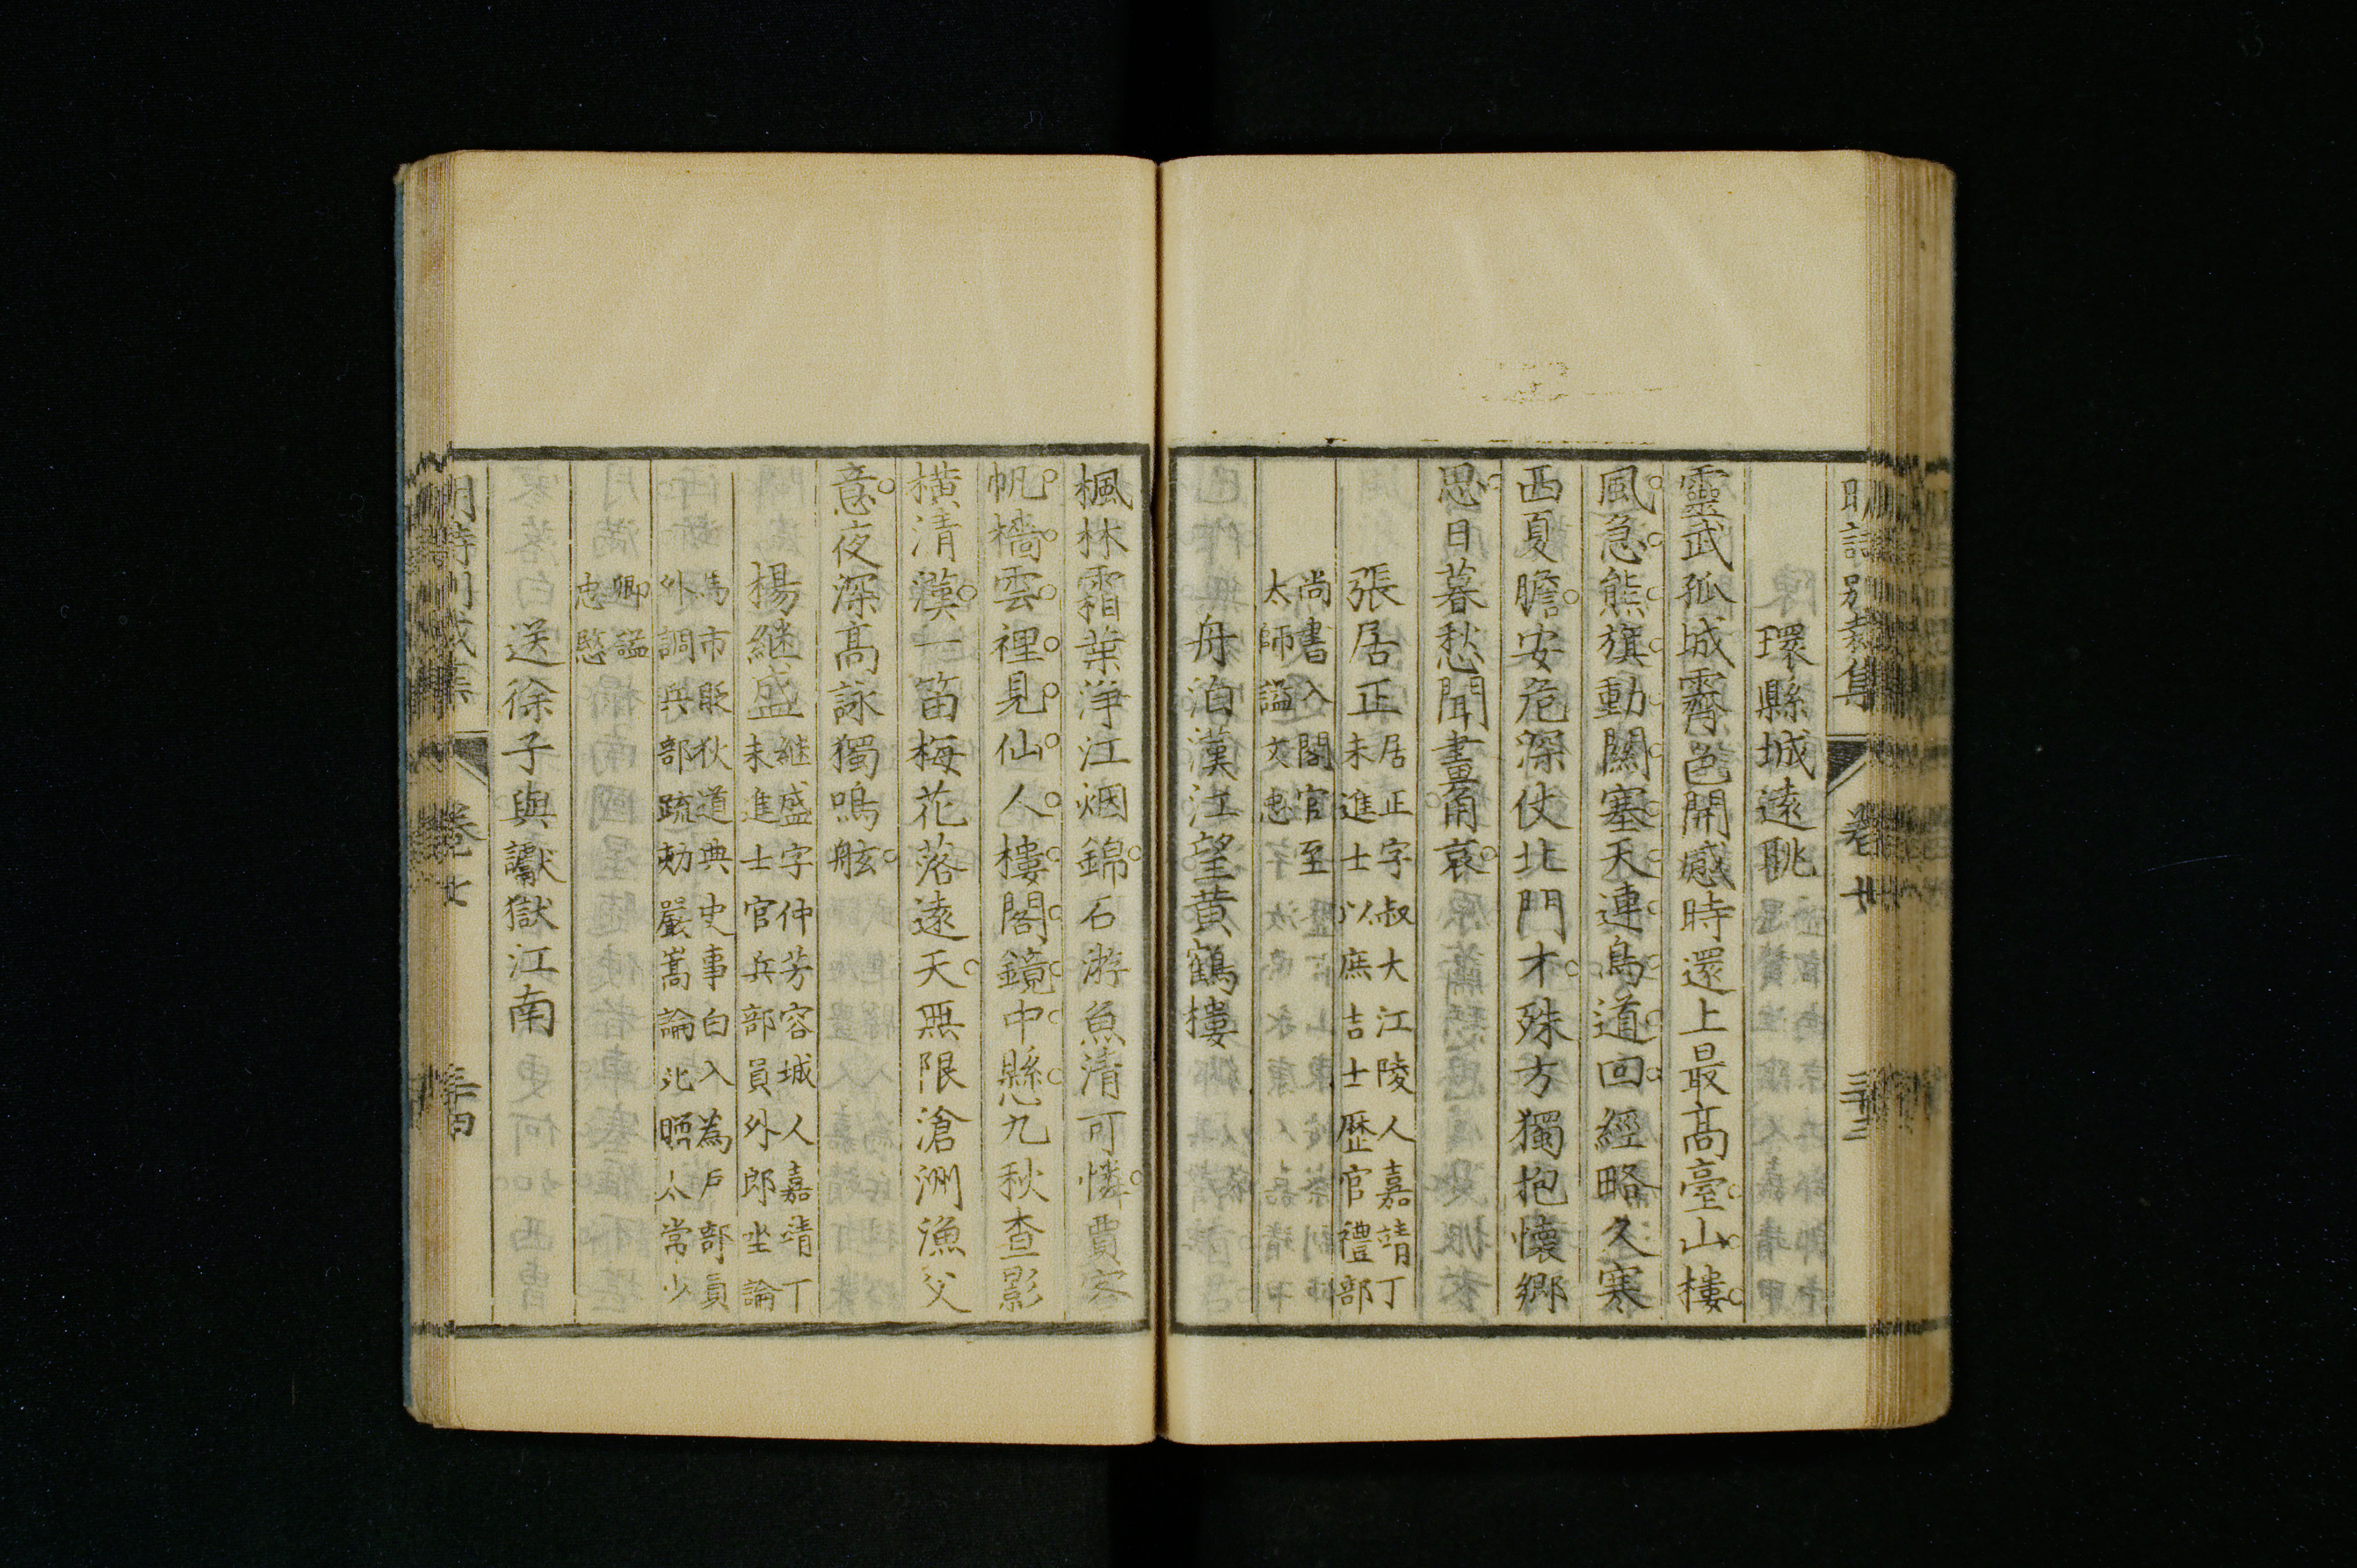 環縣城遠眺
靈武孤城霽色開感時還上最高臺山樓
風急熊旗動關塞天連鳥道回經略久寒
西夏膽安危深仗北門才殊方獨抱懷鄉
思日暮愁聞畫角哀
張居正居正字叔大江陵人嘉靖丁
未進士以庶吉士歷官禮部
尚書入閣官至
太師謚文忠
舟泊漢江望黃鶴樓
楓林霜葉淨江烟錦石游魚清可憐賈客
帆檣雲裡見仙人樓閣鏡中懸九秋查影
橫清漢一笛梅花落遠天無限滄洲漁父
意夜深高詠獨鳴舷
楊継盛継盛字仲芳容城人嘉靖丁
未進士官兵部員外郎坐論
馬市貶狄道典史事白入為戶部員
外調兵部疏劾嚴嵩論死贈太常少
卿謚
忠愍
送徐子與讞獄江南
卷七